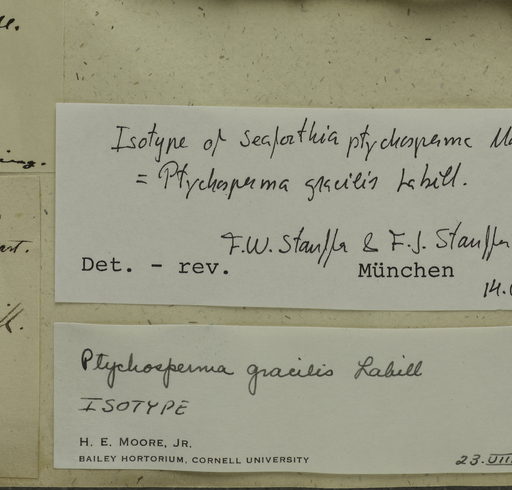 Isotype of Seaforthia ptychosperma
= Ptychosperma gracilis Labill.
F.W. Stauffer & F.J. Stauffer
Det. - rev. München
14.
Ptychosperma gracilis Labill
ISOTYPE
H. E. MOORE, JR.
BAILEY HORTORIUM, CORNELL UNIVERSITY
23.VIII